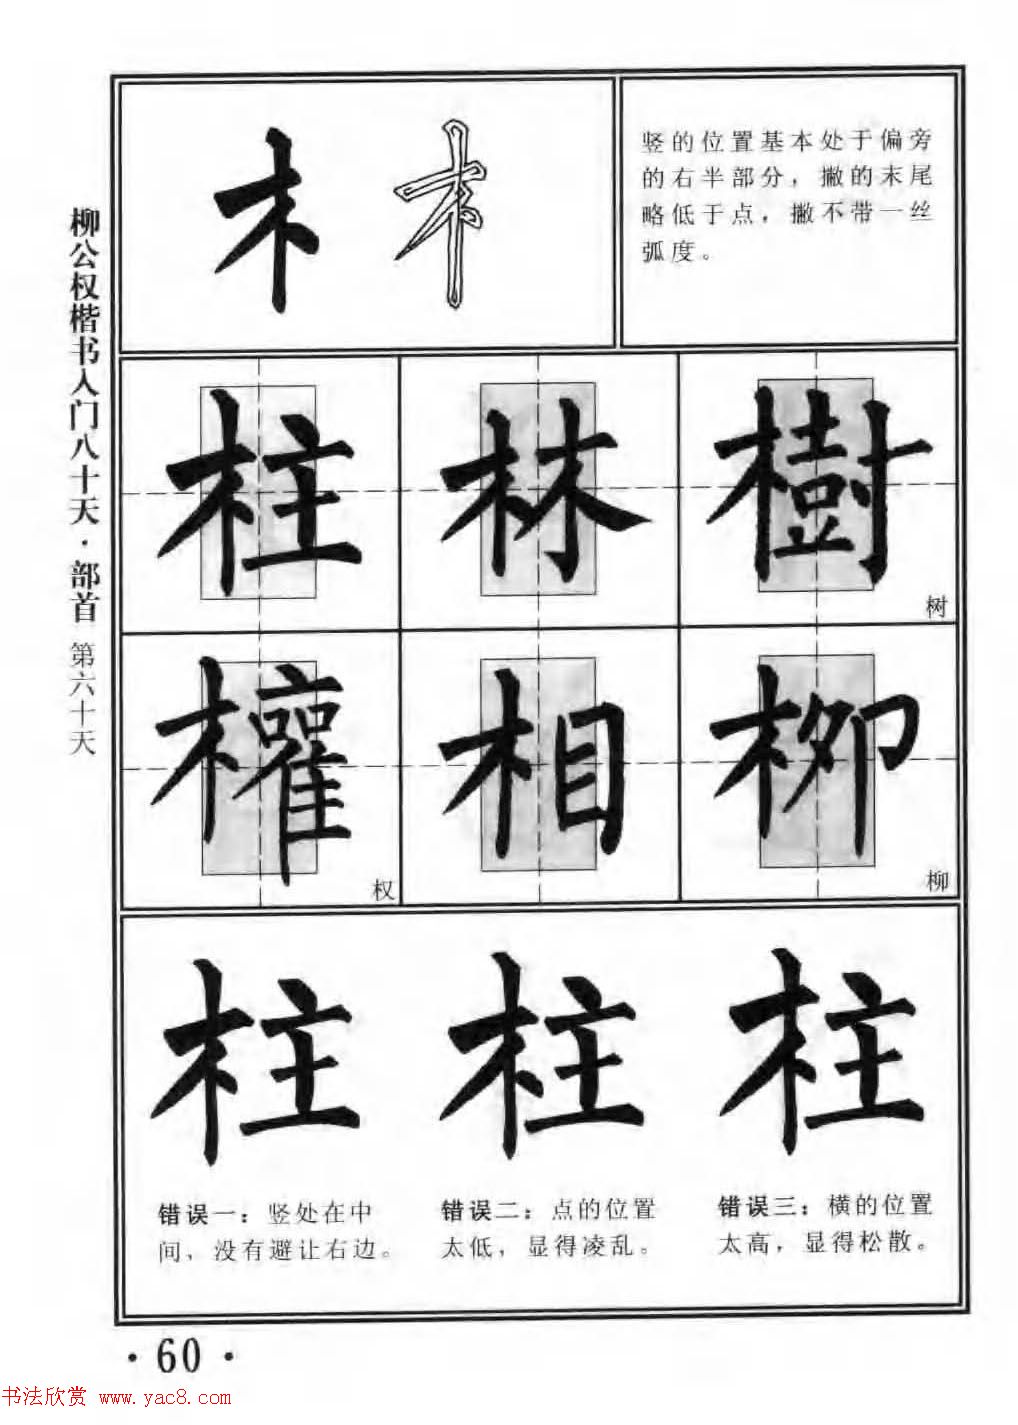 柳公权楷书入门八十天·部首 第六十天
木 木
竖的位置基本处于偏旁
的右半部分，撇的末尾
略低于点，撇不带一丝
弧度。
柱 林 樹
树
權 相 柳
权 柳
柱 柱 柱
错误一：竖处在中
间，没有避让右边。
错误二：点的位置
太低，显得凌乱。
错误三：横的位置
太高，显得松散。
·60·
书法欣赏 www.yac8.com